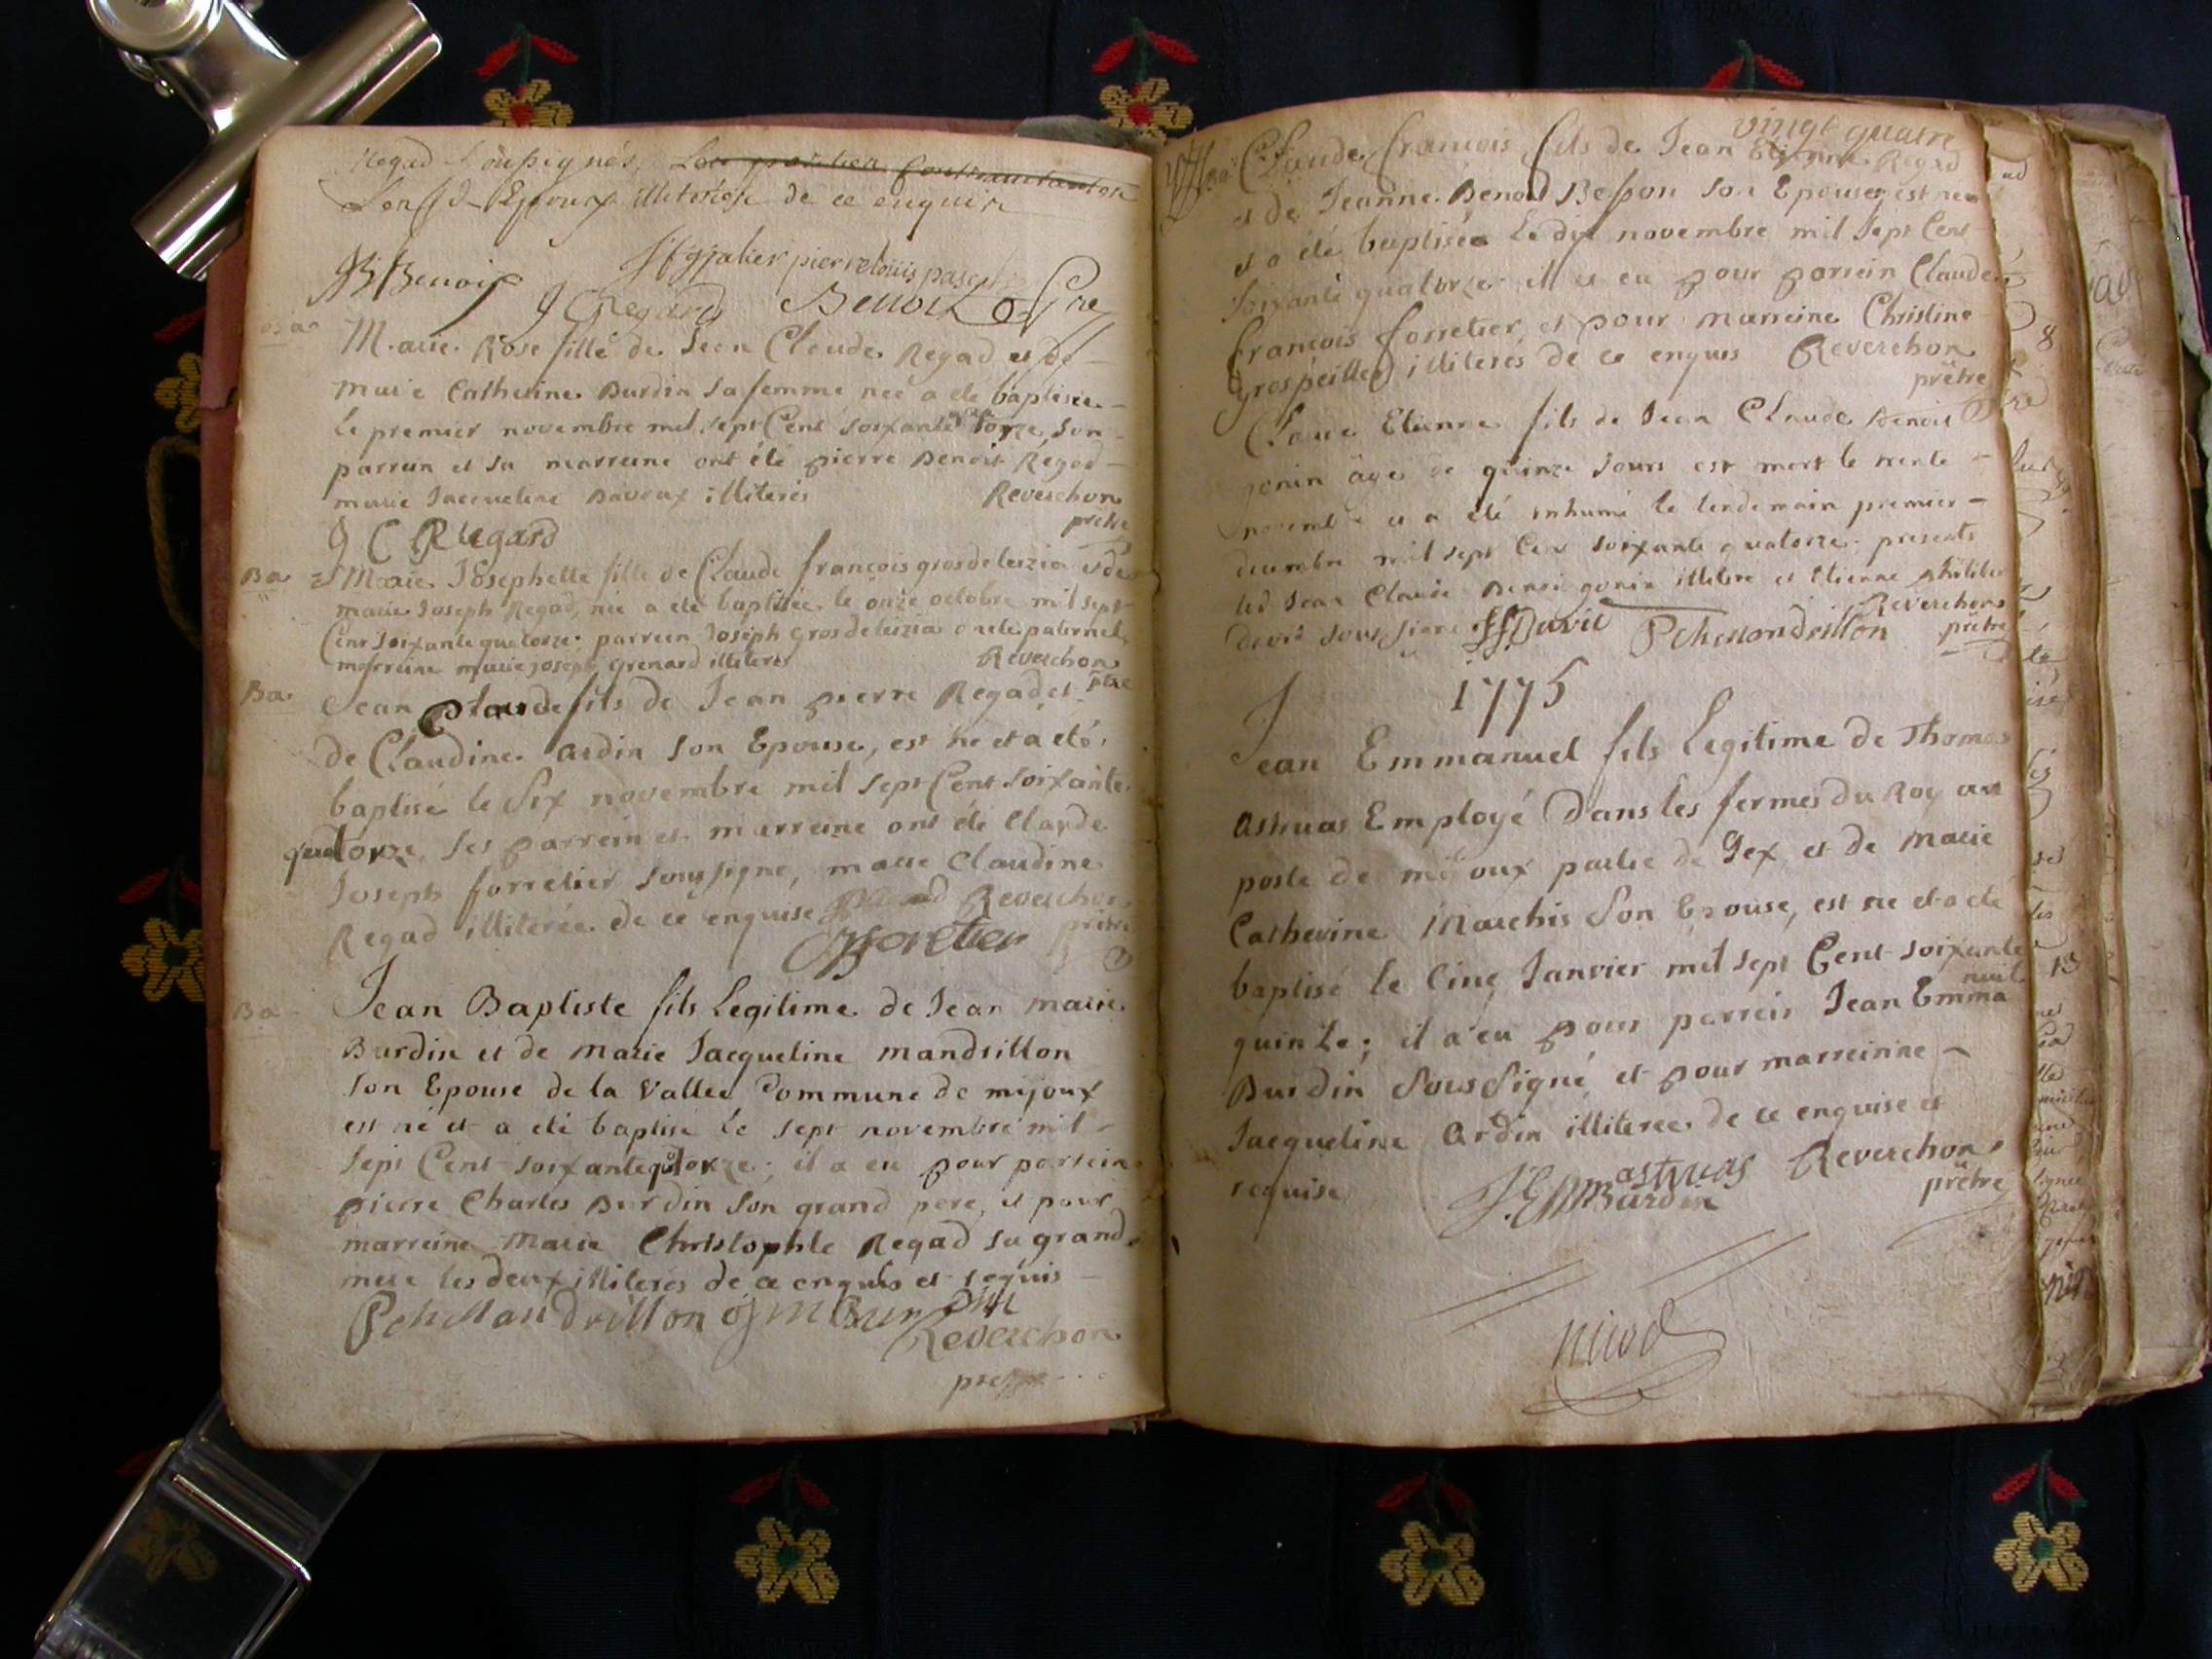 Regad soussignés,
Les d. Epoux illiterés de ce enquis
JB Benoit
pierre louis
J C Regard Benoit
Marie Rose fille de Jean Claude Regad et de
marie Catherine Burdin sa femme neé a eté baptisée
le premier novembre mil sept Cent soixante torze, son
parrein et sa marreine ont été pierre Benoit Regad
marie Jacqueline Davoux illiterés Reverchon
prêtre
J C Regard
Ba
Marie Josephette fille de Claude françois grosdeleizia et de
marie Joseph Regad, née a eté baptisée le onze octobre mil sept
Cent soixante quatorze. parrein Joseph grosdeleizia oncle paternel
marreine marie joseph grenard illiterés Reverchon
ptre
Ba.
Jean Claude fils de Jean pierre Regad et
de Claudine ardin son Epouse, est né et a eté
baptisé le Six novembre mil sept Cent soixante
quatorze, ses parrein et marreine ont été Claude
Joseph forretier soussigné, marie Claudine
Regad illiterée de ce enquise Reverchon
prêtre
foretier
Ba
Jean Baptiste fils Legitime de Jean marie
Burdin et de marie Jacqueline mandrillon
son Epouse de la Vallée Commune de mijoux
est né et a eté baptisé le sept novembre mil
sept Cent soixante qutorze; il a eu pour parrein
pierre Charles Burdin son grand pere, et pour
marreine marie Christophle Regad sa grand
mere les deux illiterés de ce enquis et requis
Ph Mandrillon J M Burdin
Reverchon
prêtre
vingt quatre
Ba
Claude francois fils de Jean Etienne Regad
et de Jeanne Benoit Besson son Epouse, est né
et a été baptisée Le dix novembre mil sept Cent
soixante quatorze il a eu pour parrein Claude
françois forretier, et pour marreine Christine
Grospeillet illiterés de ce enquis Reverchon
prêtre
Claude Etienne fils de Jean Claude Benoit
gonin âgé de quinze jours est mort le trente
novembre et a été inhumé le lendemain premier
decembre mil sept Cent soixante quatorze. presents
led Jean Claude Benoit gonin illiteré et Etienne philiber
David sous signé Reverchon
prêtre
David P ch Mandrillon
1775
Jean Emmanuel fils Legitime de Thomas
astruas Employé Dans les fermes du Roy au
poste de mijoux partie de Gex et de marie
Catherine Marchis son Epouse, est né et a eté
baptisé le Cinq Janvier mil sept Cent soixante
quinze; il a eu pour parrein Jean Emma
nuel
Burdin sous signé et pour marreinne
Jacqueline Ardin illiterée de ce enquise et
requise astruas Reverchon
prêtre
J. E M Burdin
nicod